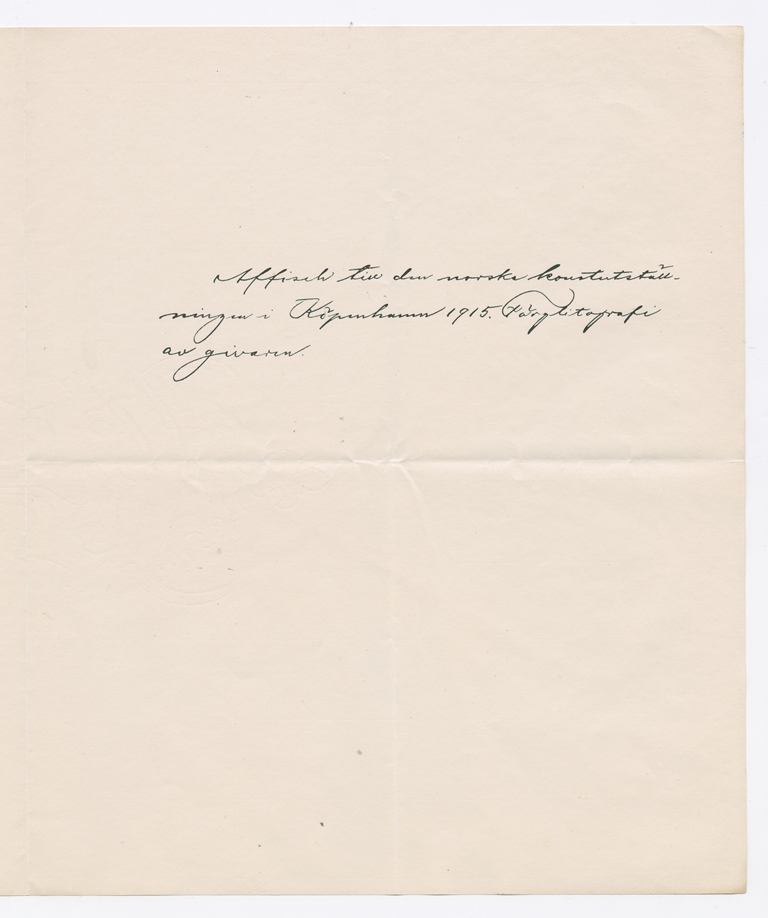 Affisch till den norska konstutställ-
ningen i Köpenhamn 1915. Färglitografi
av givaren.